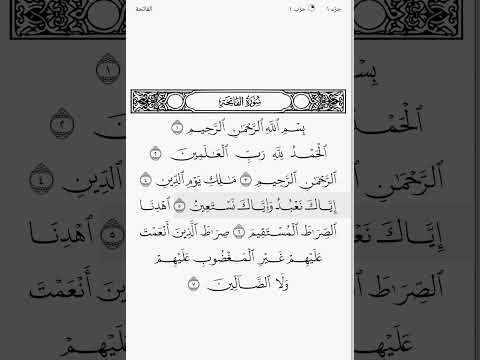 جزء ١ حزب ١ الفاتحة
سُورَةُ الفَاتِحَةِ
بِسْمِ ٱللَّهِ ٱلرَّحْمَٰنِ ٱلرَّحِيمِ ١
ٱلْحَمْدُ لِلَّهِ رَبِّ ٱلْعَٰلَمِينَ ٢
ٱلرَّحْمَٰنِ ٱلرَّحِيمِ ٣ مَٰلِكِ يَوْمِ ٱلدِّينِ ٤
إِيَّاكَ نَعْبُدُ وَإِيَّاكَ نَسْتَعِينُ ٥ ٱهْدِنَا
ٱلصِّرَٰطَ ٱلْمُسْتَقِيمَ ٦ صِرَٰطَ ٱلَّذِينَ أَنْعَمْتَ
عَلَيْهِمْ غَيْرِ ٱلْمَغْضُوبِ عَلَيْهِمْ
وَلَا ٱلضَّآلِّينَ ٧